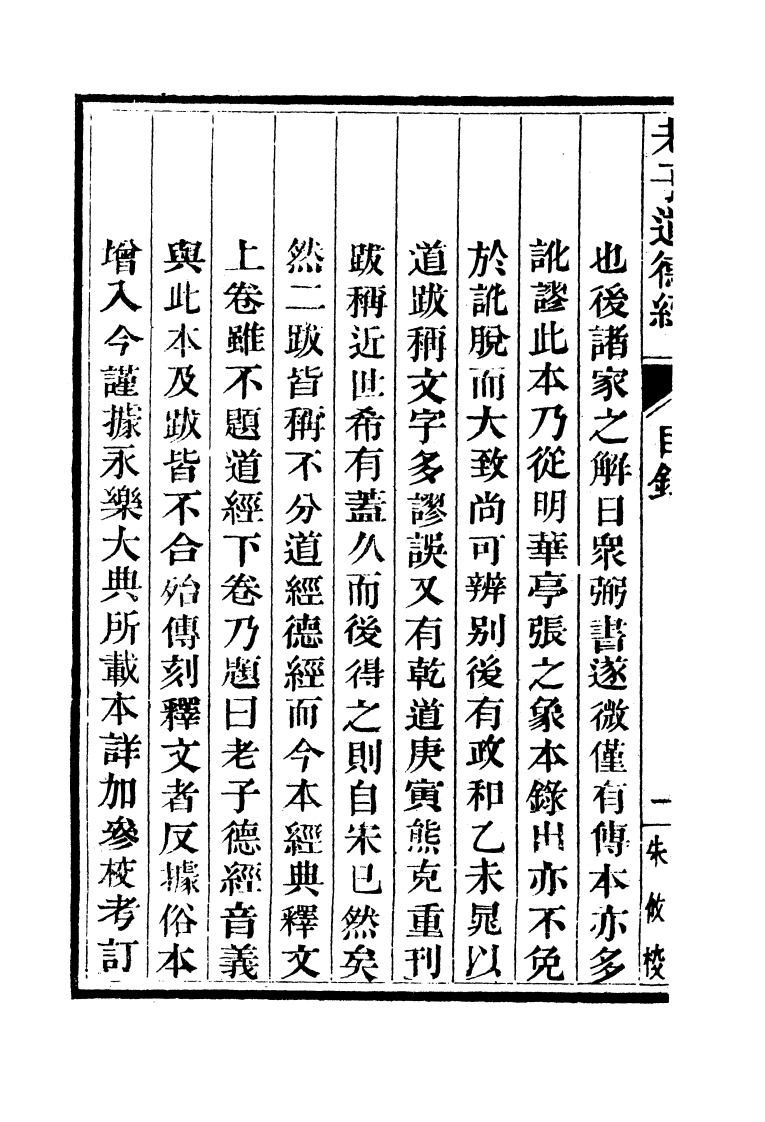 老子道德經
目錄
二
朱攸校
也後諸家之解日衆弼書遂微僅有傳本亦多
訛謬此本乃從明華亭張之象本錄出亦不免
於訛脫而大致尚可辨別後有政和乙未晁以
道跋稱文字多謬誤又有乾道庚寅熊克重刊
跋稱近世希有蓋久而後得之則自朱已然矣
然二跋皆稱不分道經德經而今本經典釋文
上卷雖不題道經下卷乃題曰老子德經音義
與此本及跋皆不合殆傳刻釋文者反據俗本
增入今謹據永樂大典所載本詳加參校考訂